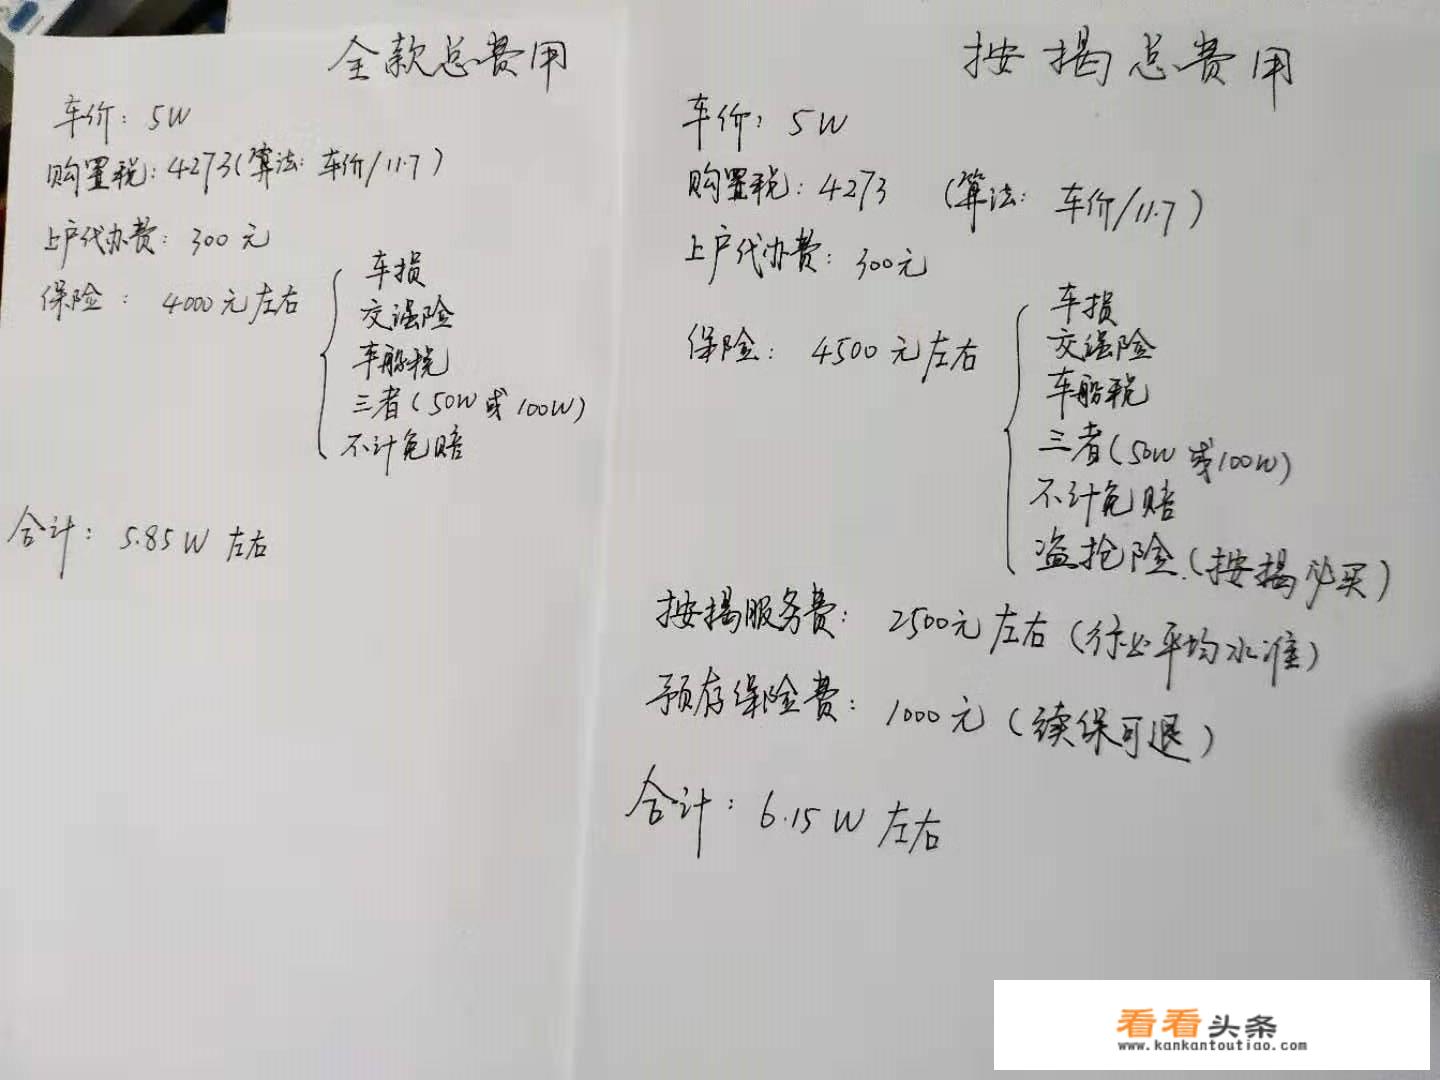 全款总费用
车价：5W
购置税：4273（算法：车价/11.7）
上户代办费：300元
保险：4000元左右
车损
交强险
车船税
三者（50W或100W）
不计免赔
合计：5.85W左右
按揭总费用
车价：5W
购置税：4273（算法：车价/11.7）
上户代办费：300元
保险：4500元左右
车损
交强险
车船税
三者（50W或100W）
不计免赔
盗抢险.（按揭必买）
按揭服务费：2500元左右（行业平均水准）
预存保险费：1000元（续保可退）
合计：6.15W左右
看看头条
www.kankantoutiao.com